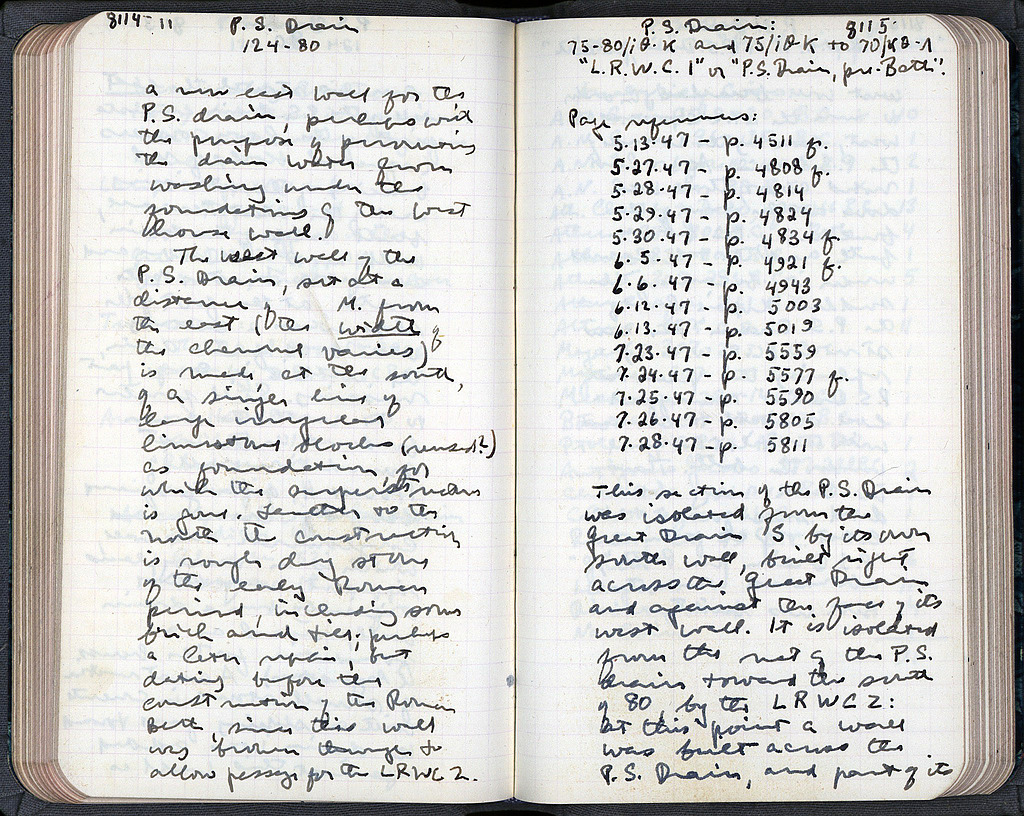 8114-11
P. S. Drain
124-80
a new east wall for the
P.S. drain, perhaps with
the purpose of preventing
the drain water from
washing under the
foundations of the west
house wall.
The west wall of the
P.S. Drain, set at a
distance of M. from
the east (the width of
the channel varies)
is made, at the south,
of a single line of
large irregular
limestone blocks (reused?)
as foundation for
which the superstructure
is gone. Further to the
north the construction
is rough dry stone
of the early Roman
period, including some
brick and tile; perhaps
a later repair, but
dating before the
construction of the Roman
Bath, since this wall
was broken through to
allow passage for the LRWC 2.
P. S. Drain: 8115
75-80/ΙΘ-Κ and 75/ΙΘ-Κ to 70/ΚΘ-Λ
"L.R.W.C. 1" or "P.S. Drain, pre-Bath".
Page references:
5.13.47 - p. 4511 f.
5.27.47 - p. 4808 f.
5.28.47 - p. 4814
5.29.47 - p. 4824
5.30.47 - p. 4834 f.
6.5.47 - p. 4921 f.
6.6.47 - p. 4943
6.12.47 - p. 5003
6.13.47 - p. 5019
7.23.47 - p. 5559
7.24.47 - p. 5577 f.
7.25.47 - p. 5590
7.26.47 - p. 5805
7.28.47 - p. 5811
This section of the P.S. Drain
was isolated from the
Great Drain S by its own
south wall, built right
across the Great Drain
and against the face of its
west wall. It is isolated
from the rest of the P.S.
Drain toward the south
of 80, by the LRWC 2:
at this point a wall
was built across the
P.S. Drain, and part of its